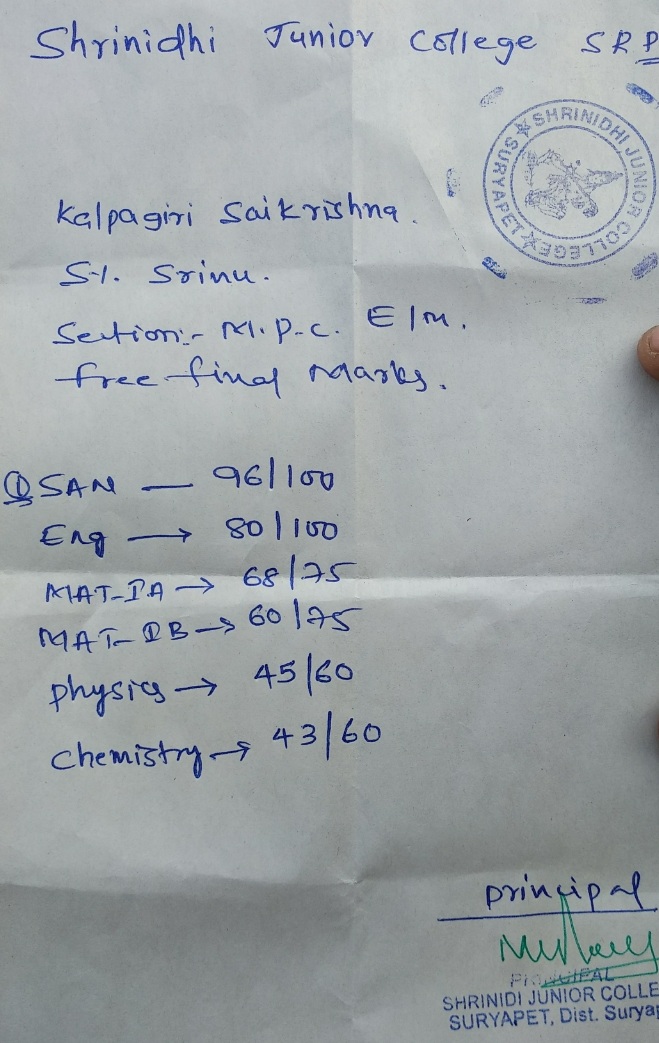 Shrinidhi Junior College SRP
SHRINIDHI JUNIOR COLLEGE
SURYAPET
Kalpagiri Saikrishna.
S/. Srinu.
Section:- M.P.C. E/M.
free final Marks.
① SAN — 96/100
Eng → 80/100
MAT-IA → 68/75
MAT-IB → 60/75
physics → 45/60
chemistry → 43/60
principal
PRINCIPAL
SHRINIDI JUNIOR COLLE
SURYAPET, Dist. Suryap